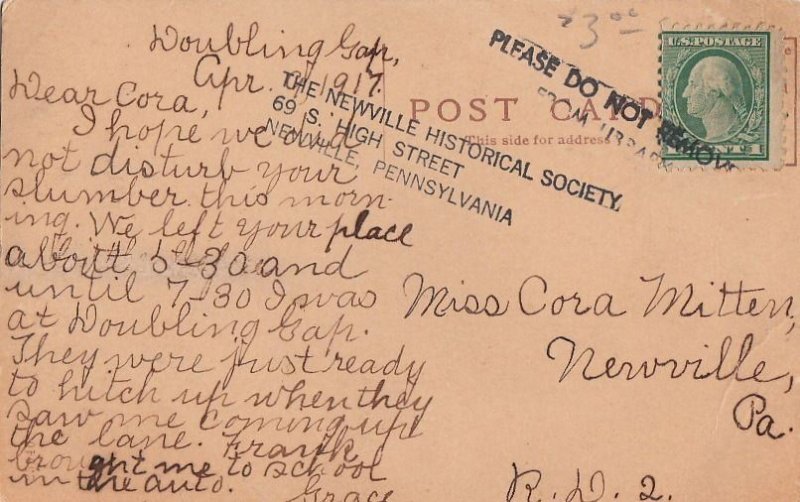 Doubling Gap,
Apr. 1917.
Dear Cora,
I hope we did
not disturb your
slumber this morn-
ing. We left your place
about 5-30 and
until 7-30 I was
at Doubling Gap.
They were just ready
to hitch up when they
saw me coming up
the lane. Frank
brought me to school
in the auto.
Grace
3.00
POST CARD
This side for address
U.S. POSTAGE
CENT 1
PLEASE DO NOT REMOVE
FROM LIBRARY
THE NEWVILLE HISTORICAL SOCIETY,
69 S. HIGH STREET
NEWVILLE, PENNSYLVANIA
Miss Cora Mitten,
Newville,
Pa.
R.D. 2.